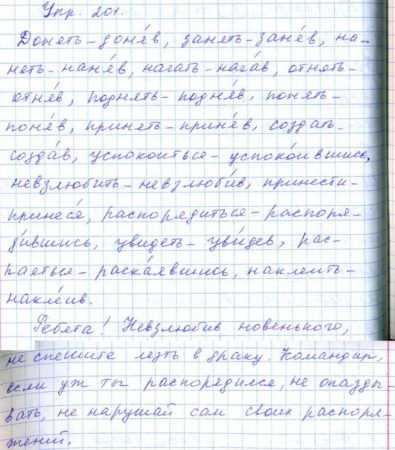 Упр. 201.
Донять – доня́в, занять – заня́в, на-
нять – наня́в, начать – нача́в, отнять –
отня́в, поднять – подня́в, понять –
поня́в, принять – приня́в, создать –
созда́в, успокоиться – успоко́ившись,
невзлюбить – невзлюби́в, принести –
принеся́, распорядиться – распоря-
ди́вшись, увидеть – уви́дев, рас-
каяться – раска́явшись, наклеить –
накле́ив.
Ребята! Невзлюбив новенького,
не спешите лезть в драку. Командир,
если уж ты распорядился, не опазды-
вать, не нарушай сам своих распоря-
жений.